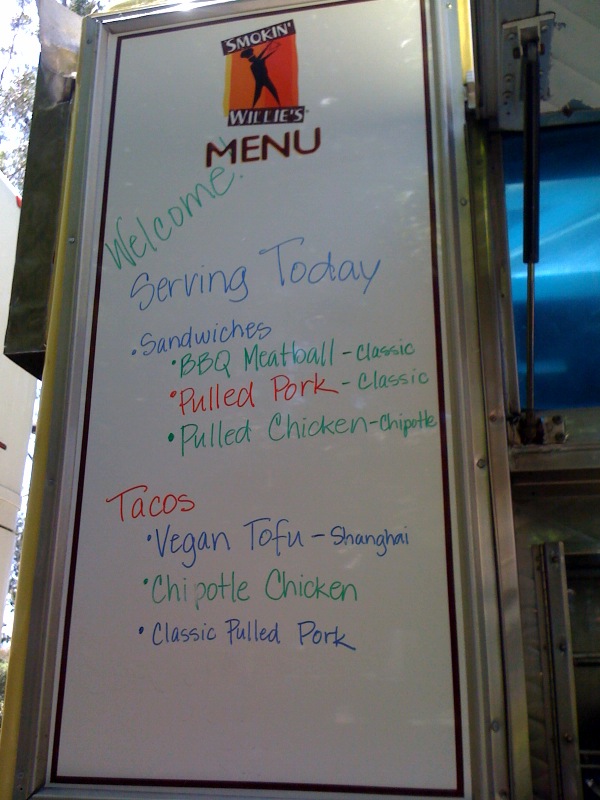 SMOKIN'
WILLIE'S
MENU
Welcome!
Serving Today
• Sandwiches
• BBQ Meatball - Classic
• Pulled Pork - Classic
• Pulled Chicken - Chipotle
Tacos
• Vegan Tofu - Shanghai
• Chipotle Chicken
• Classic Pulled Pork